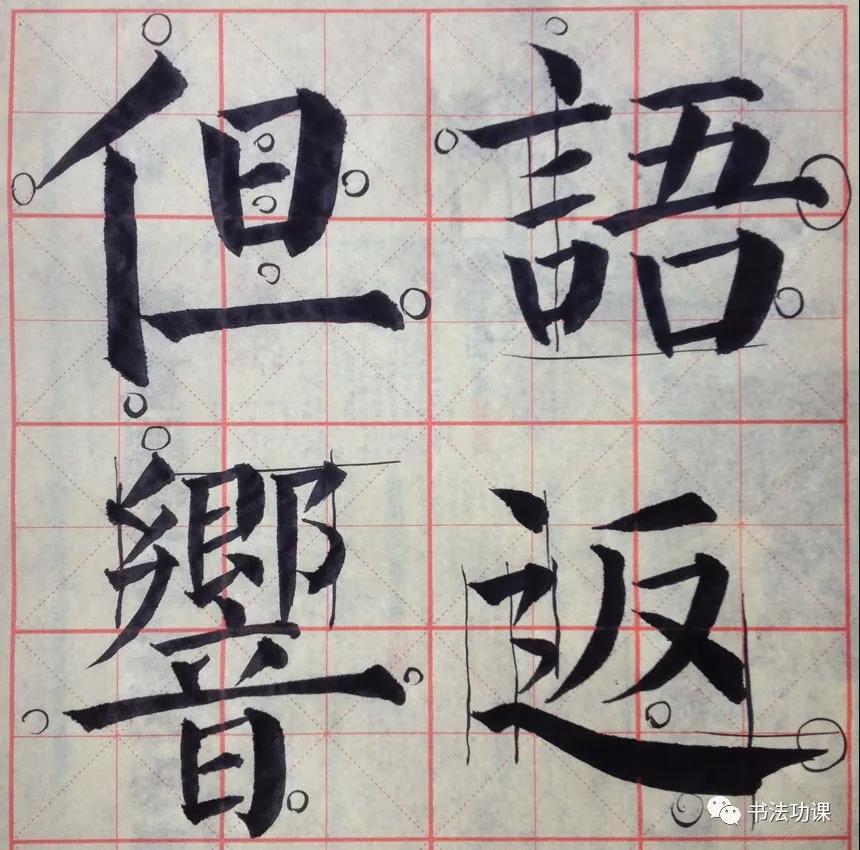 但語
響返
书法功课